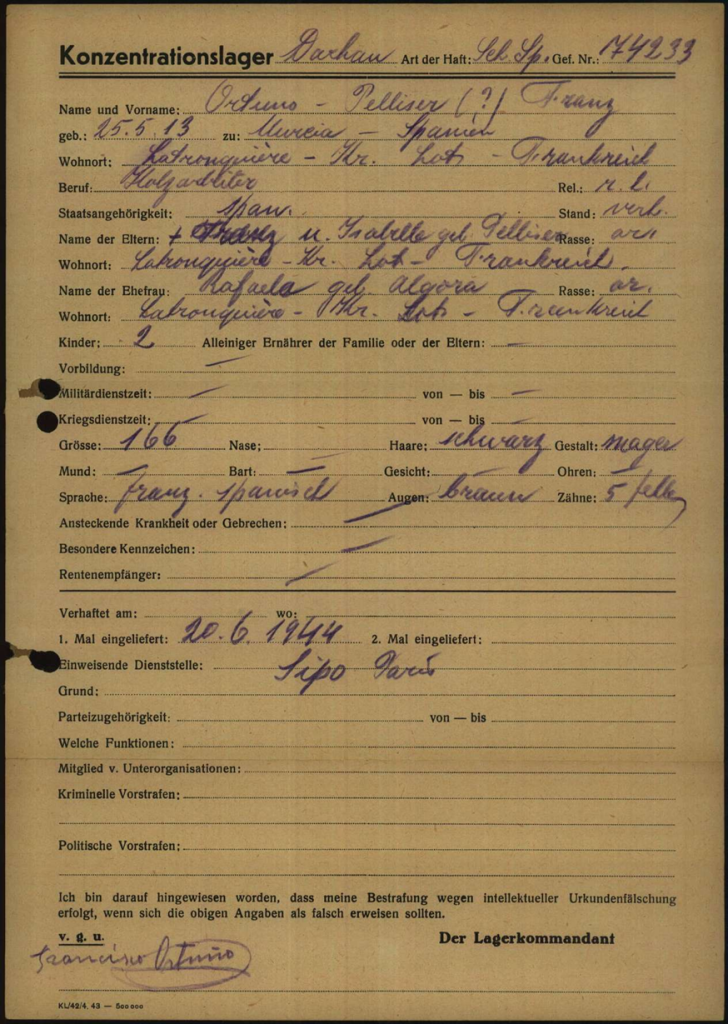 Konzentrationslager Dachau Art der Haft: Sch. Sp. Gef. Nr.: 74233
Name und Vorname: Ortuno - Pelliser (?) Franz
geb.: 25.5.13 zu: Murcia - Spanien
Wohnort: Latronquière - Kr. Lot - Frankreich
Beruf: Holzarbeiter Rel.: r. k.
Staatsangehörigkeit: span. Stand: verh.
Name der Eltern: + Franz u. Isabelle geb. Pelliser Rasse: ar.
Wohnort: Latronquière - Kr. Lot - Frankreich.
Name der Ehefrau: Rafaela geb. Algora Rasse: ar.
Wohnort: Latronquière - Kr. Lot - Frankreich
Kinder: 2 Alleiniger Ernährer der Familie oder der Eltern: —
Vorbildung: —
Militärdienstzeit: — von — bis —
Kriegsdienstzeit: — von — bis —
Grösse: 166 Nase: — Haare: schwarz Gestalt: mager
Mund: — Bart: — Gesicht: — Ohren: —
Sprache: franz. spanisch Augen: braun Zähne: 5 fehlen
Ansteckende Krankheit oder Gebrechen: —
Besondere Kennzeichen: —
Rentenempfänger: —
Verhaftet am: wo:
1. Mal eingeliefert: 20.6.1944 2. Mal eingeliefert:
Einweisende Dienststelle: Sipo Paris
Grund:
Parteizugehörigkeit: von — bis
Welche Funktionen:
Mitglied v. Unterorganisationen:
Kriminelle Vorstrafen:
Politische Vorstrafen:
Ich bin darauf hingewiesen worden, dass meine Bestrafung wegen intellektueller Urkundenfälschung
erfolgt, wenn sich die obigen Angaben als falsch erweisen sollten.
v. g. u. Der Lagerkommandant
Francisco Ortuño
KL/42/4. 43 — 500 000